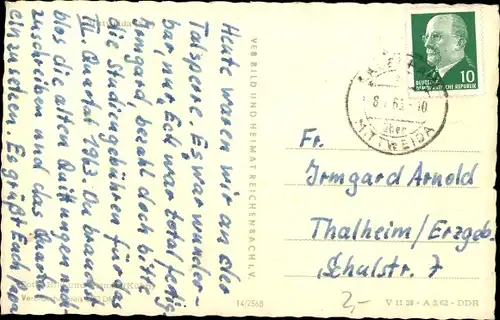 Heute waren wir an der
Talsperre. Es war wunder-
bar, nur Eck war total fertig.
Irmgard, bezahl doch bitte
die Studiengebühren für das
III. Quartal 1963. Du brauchst
blos die alten Quittungen
zuschreiben und das Quartal
einzusetzen. Es grüßt Euch
VEB BILD UND HEIMAT REICHENBACH I. V.
14/2568
10
DEUTSCHE
DEMOKRATISCHE REPUBLIK
über
MITTWEIDA
Fr.
Irmgard Arnold
Thalheim/Erzgeb.
Schulstr. 7
2,-
V 11 28 - A 3/62 - DDR